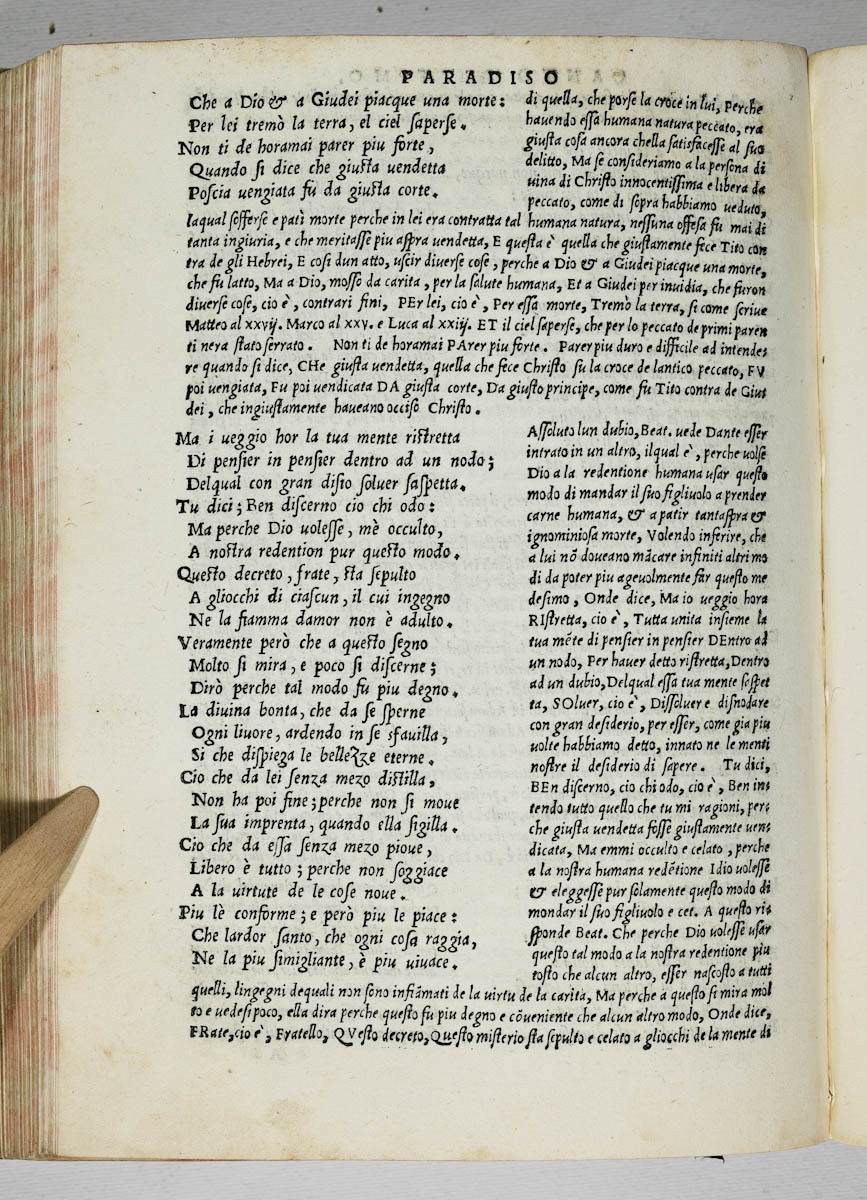 PARADISO
Che a Dio & a Giudei piacque una morte:
Per lei tremò la terra, el ciel saperse.
Non ti de horamai parer piu forte,
Quando si dice che giusta uendetta
Poscia uengiata fù da giusta corte.
di quella, che porse la croce in lui, Perche
hauendo essa humana natura peccato, era
giusta cosa ancora chella satisfacesse al suo
delitto, Ma se consideriamo a la persona di
uina di Christo innocentissima e libera da
peccato, come di sopra habbiamo ueduto,
laqual sofferse e patì morte perche in lei era contratta tal humana natura, nessuna offesa fu mai di
tanta ingiuria, e che meritasse piu aspra uendetta, E questa è quella che giustamente fece Tito con
tra de gli Hebrei, E cosi dun atto, uscir diuerse cose, perche a Dio & a Giudei piacque una morte,
che fu latto, Ma a Dio, mosso da carita, per la salute humana, Et a Giudei per inuidia, che furon
diuerse cose, cio è, contrari fini, PEr lei, cio è, Per essa morte, Tremò la terra, si come scriue
Matteo al xxvij. Marco al xxv. e Luca al xxiij. ET il ciel saperse, che per lo peccato de primi paren
ti nera stato serrato. Non ti de horamai PArer piu forte. Parer piu duro e difficile ad intende-
re quando si dice, CHe giusta uendetta, quella che fece Christo su la croce de lantico peccato, FV
poi uengiata, Fu poi uendicata DA giusta corte, Da giusto principe, come fu Tito contra de Giu-
dei, che ingiustamente haueano occiso Christo.
Ma i ueggio hor la tua mente ristretta
Di pensier in pensier dentro ad un nodo;
Delqual con gran disio soluer saspetta.
Tu dici; Ben discerno cio chi odo:
Ma perche Dio uolesse, mè occulto,
A nostra redention pur questo modo.
Questo decreto, frate, sta sepulto
A gliocchi di ciascun, il cui ingegno
Ne la fiamma damor non è adulto.
Veramente però che a questo segno
Molto si mira, e poco si discerne;
Dirò perche tal modo fu piu degno.
La diuina bonta, che da se sperne
Ogni liuore, ardendo in se sfauilla,
Si che dispiega le bellezze eterne.
Cio che da lei senza mezo distilla,
Non ha poi fine; perche non si moue
La sua imprenta, quando ella sigilla.
Cio che da essa senza mezo pioue,
Libero è tutto; perche non soggiace
A la uirtute de le cose noue.
Piu lè conforme; e però piu le piace:
Che lardor santo, che ogni cosa raggia,
Ne la piu simigliante, è piu uiuace.
Assoluto lun dubio, Beat. uede Dante esser
intrato in un altro, ilqual è, perche uolse
Dio a la redentione humana usar questo
modo di mandar il suo figliuolo a prender
carne humana, & a patir tantaspra &
ignominiosa morte, Volendo inferire, che
a lui nō doueano mācare infiniti altri mo
di da poter piu ageuolmente far questo me
desimo, Onde dice, Ma io ueggio hora
RIstretta, cio è, Tutta unita insieme la
tua mēte di pensier in pensier DEntro ad
un nodo, Per hauer detto ristretta, Dentro
ad un dubio, Delqual essa tua mente sospet
ta, SOluer, cio è, Dissoluer e disnodare
con gran desiderio, per esser, come gia piu
uolte habbiamo detto, innato ne le menti
nostre il desiderio di sapere. Tu dici,
BEn discerno, cio chi odo, cio è, Ben in-
tendo tutto quello che tu mi ragioni, per-
che giusta uendetta fosse giustamente uen-
dicata, Ma emmi occulto e celato, perche
a la nostra humana redētione Idio uolesse
& eleggesse pur solamente questo modo di
mondar il suo figliuolo e cet. A questo ri-
sponde Beat. Che perche Dio uolesse usar
questo tal modo a la nostra redentione piu
tosto che alcun altro, esser nascosto a tutti
quelli, lingegni dequali non sono infiāmati de la uirtu de la carità, Ma perche a questo si mira mol
to e uedesi poco, ella dira perche questo fu piu degno e cōueniente che alcun altro modo, Onde dice,
FRate, cio è, Fratello, QVesto decreto, Questo misterio sta sepulto e celato a gliocchi de la mente di